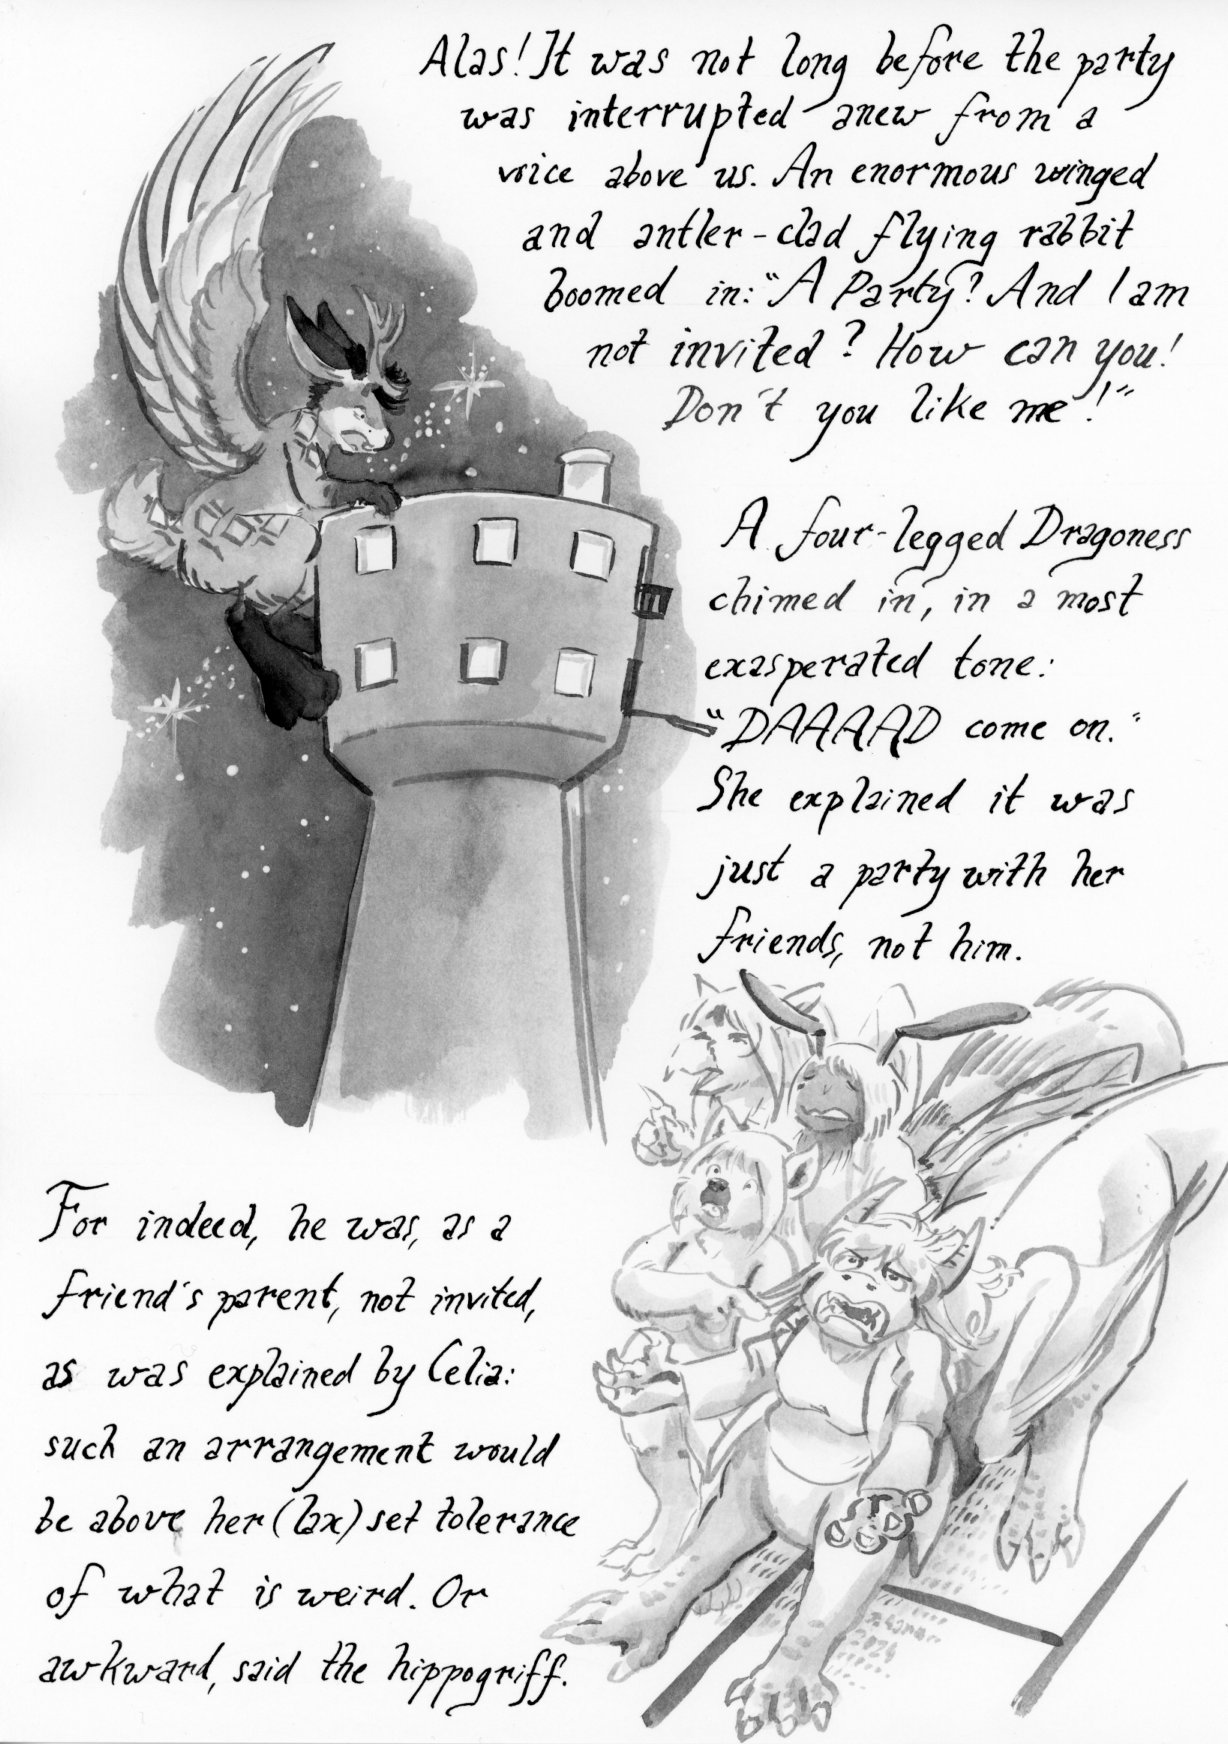 Alas! It was not long before the party
was interrupted anew from a
voice above us. An enormous winged
and antler-clad flying rabbit
boomed in: "A Party? And I am
not invited? How can you!
Don't you like me!"
A four-legged Dragoness
chimed in, in a most
exasperated tone:
"DAAAAD come on."
She explained it was
just a party with her
friends, not him.
For indeed, he was, as a
friend's parent, not invited,
as was explained by Celia:
such an arrangement would
be above her (lax) set tolerance
of what is weird. Or
awkward, said the hippogriff.